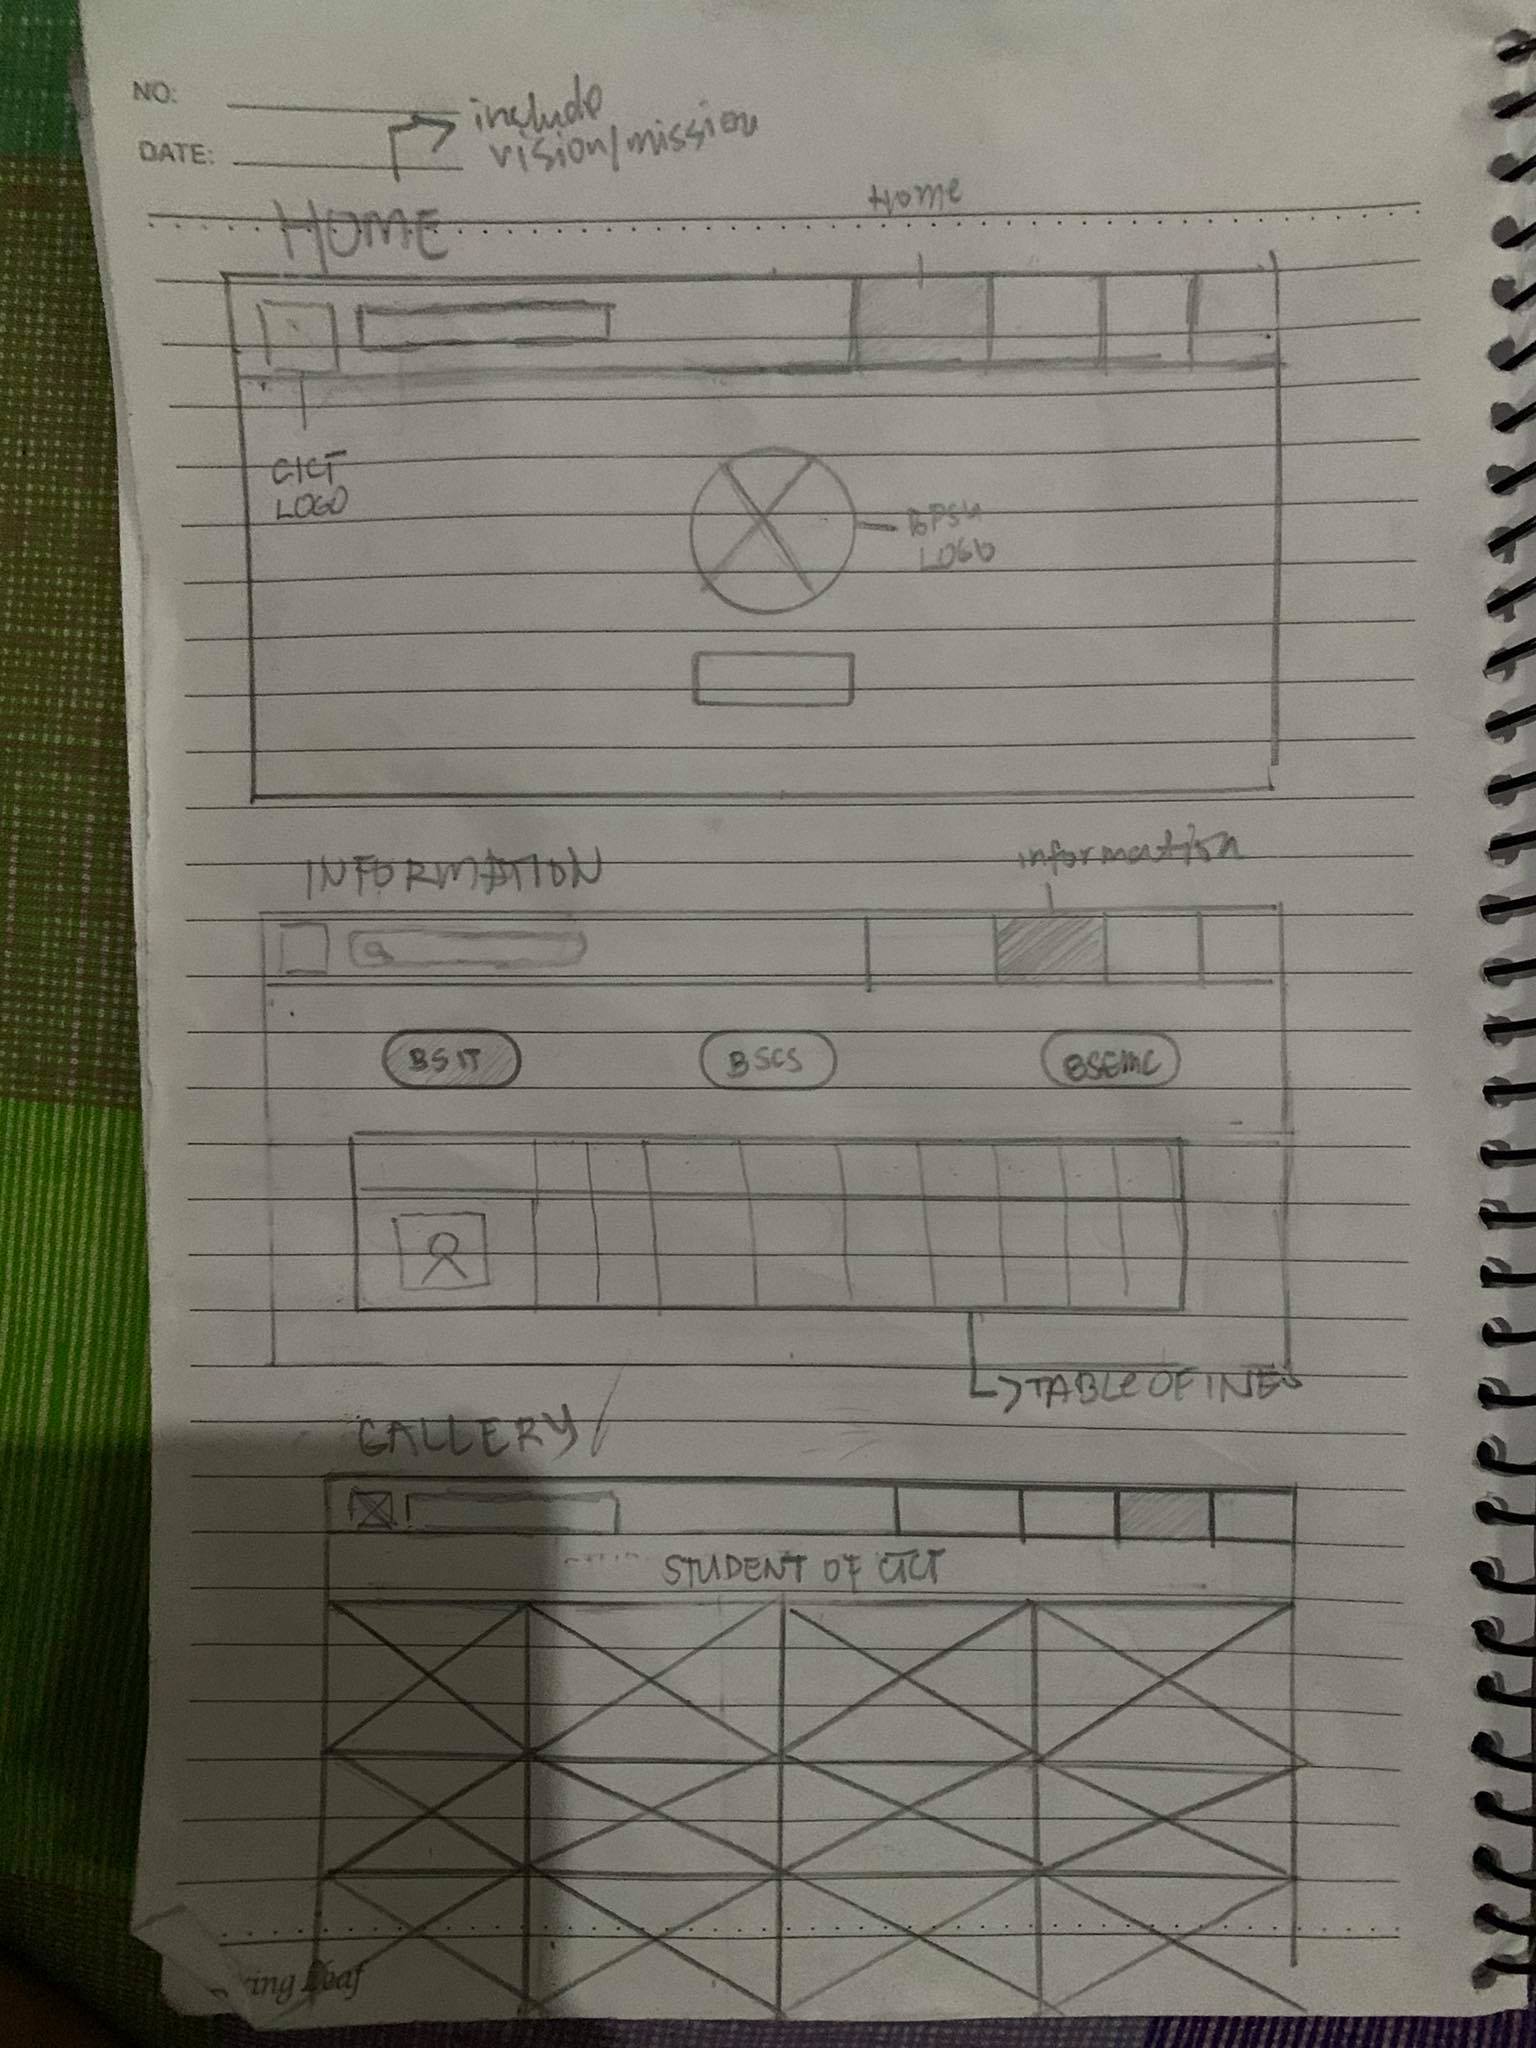 NO:
include
DATE:
vision/mission
HOME
Home
CICT
LOGO
BPSU
LOGO
INFORMATION
information
BSIT
BSCS
BSEMC
TABLE OF INFO
GALLERY
STUDENT OF CICT
Leaf